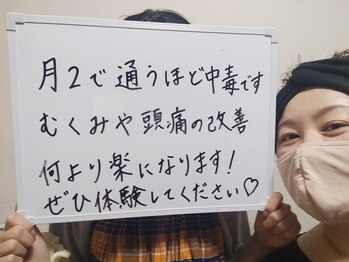 月2で通うほど中毒です
むくみや頭痛の改善
何より楽になります!
ぜひ体験してください♡